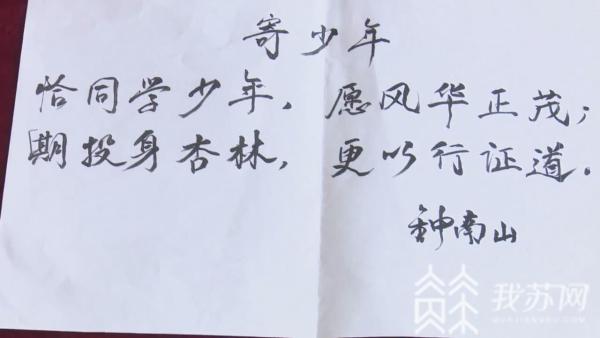 寄少年
恰同学少年，愿风华正茂；
期投身杏林，更以行证道。
钟南山
我苏网